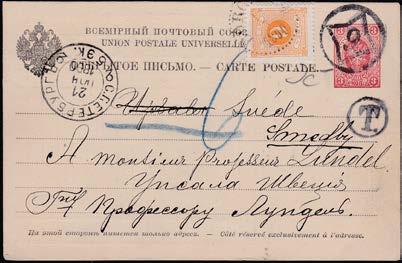 ВСЕМІРНЫЙ ПОЧТОВЫЙ СОЮЗ
UNION POSTALE UNIVERSELLE
ОТКРЫТОЕ ПИСЬМО. — CARTE POSTALE.
С.ПЕТЕРБУРГЪ
21
T
Suède
A monsieur Professeur Lundel
Упсала Швеція
Профессору Лунделъ
На этой сторонѣ пишется только адресъ. — Côté réservé exclusivement à l'adresse.